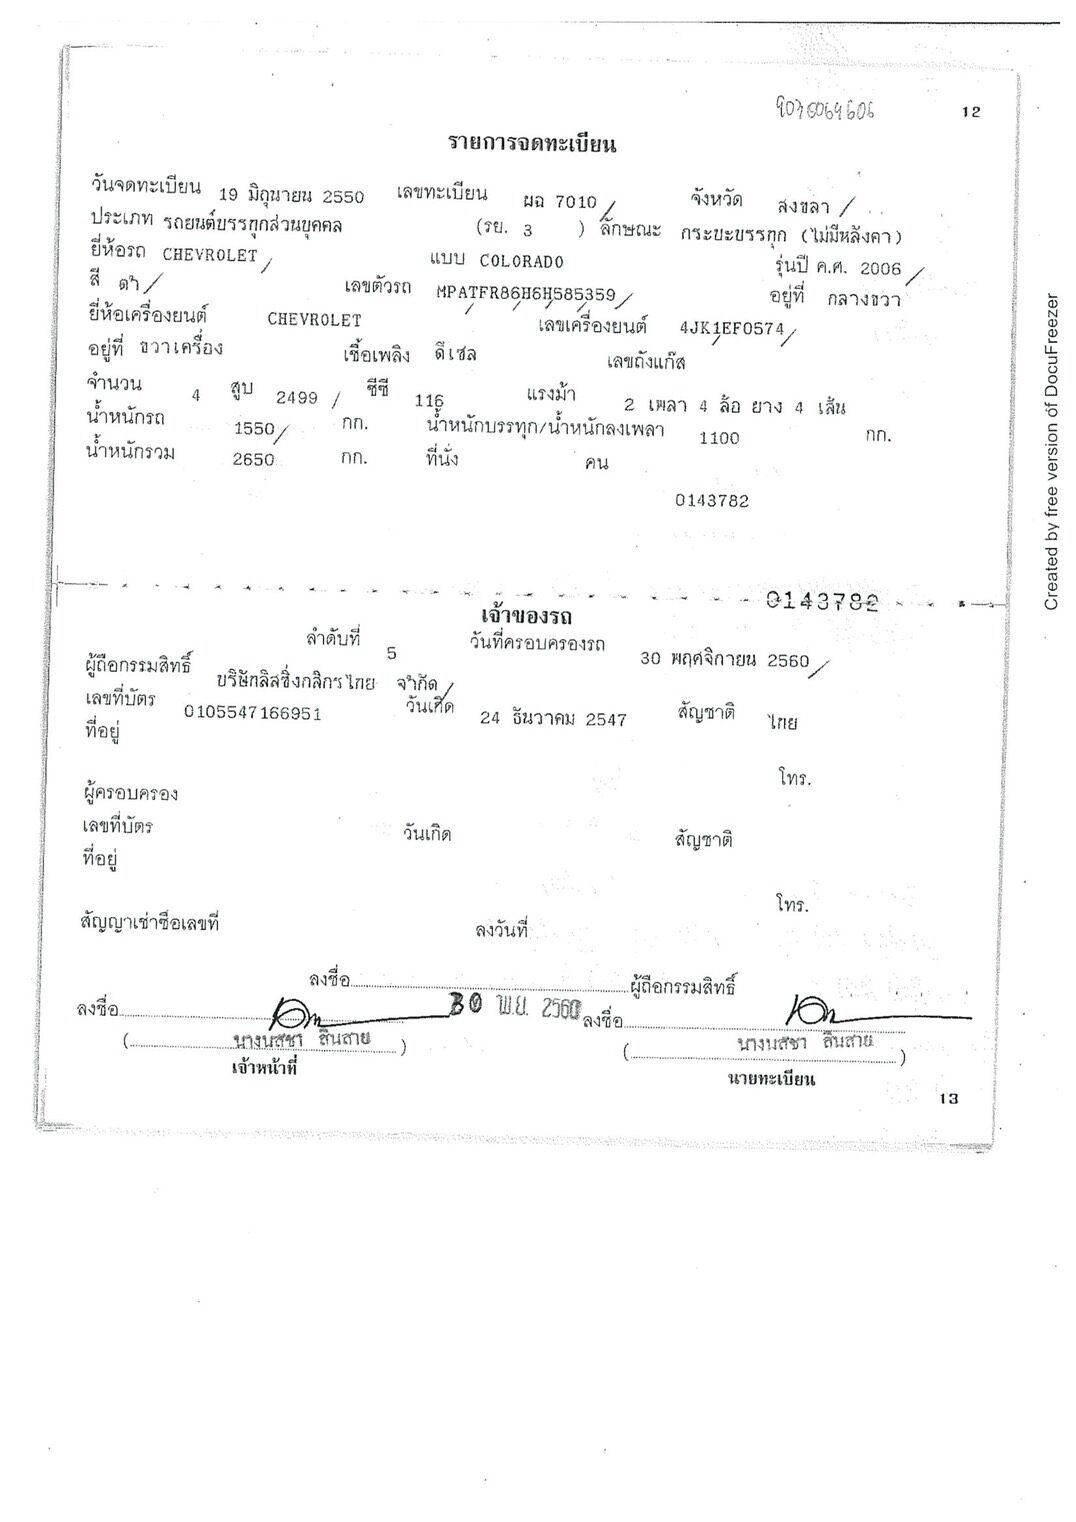 9070069606
12
รายการจดทะเบียน
วันจดทะเบียน 19 มิถุนายน 2550 เลขทะเบียน ผฉ 7010 / จังหวัด สงขลา /
ประเภท รถยนต์บรรทุกส่วนบุคคล (รย. 3 ) ลักษณะ กระบะบรรทุก (ไม่มีหลังคา)
ยี่ห้อรถ CHEVROLET / แบบ COLORADO รุ่นปี ค.ศ. 2006 /
สี ดำ / เลขตัวรถ MPATFR86H6H585359 / อยู่ที่ กลางขวา
ยี่ห้อเครื่องยนต์ CHEVROLET เลขเครื่องยนต์ 4JK1EF0574 /
อยู่ที่ ขวาเครื่อง เชื้อเพลิง ดีเซล เลขถังแก๊ส
จำนวน 4 สูบ 2499 / ซีซี 116 แรงม้า 2 เพลา 4 ล้อ ยาง 4 เส้น
น้ำหนักรถ 1550 / กก. น้ำหนักบรรทุก/น้ำหนักลงเพลา 1100 กก.
น้ำหนักรวม 2650 กก. ที่นั่ง คน
0143782
0143782
เจ้าของรถ
ลำดับที่ 5 วันที่ครอบครองรถ 30 พฤศจิกายน 2560 /
ผู้ถือกรรมสิทธิ์ บริษัทลิสซิ่งกสิกรไทย จำกัด /
เลขที่บัตร 0105547166951 วันเกิด 24 ธันวาคม 2547 สัญชาติ ไทย
ที่อยู่
โทร.
ผู้ครอบครอง
เลขที่บัตร วันเกิด สัญชาติ
ที่อยู่
โทร.
สัญญาเช่าซื้อเลขที่ ลงวันที่
ลงชื่อ ผู้ถือกรรมสิทธิ์
ลงชื่อ 30 พ.ย. 2560 ลงชื่อ
(นางนสชา สินสาย) (นางนสชา สินสาย)
เจ้าหน้าที่ นายทะเบียน
13
Created by free version of DocuFreezer